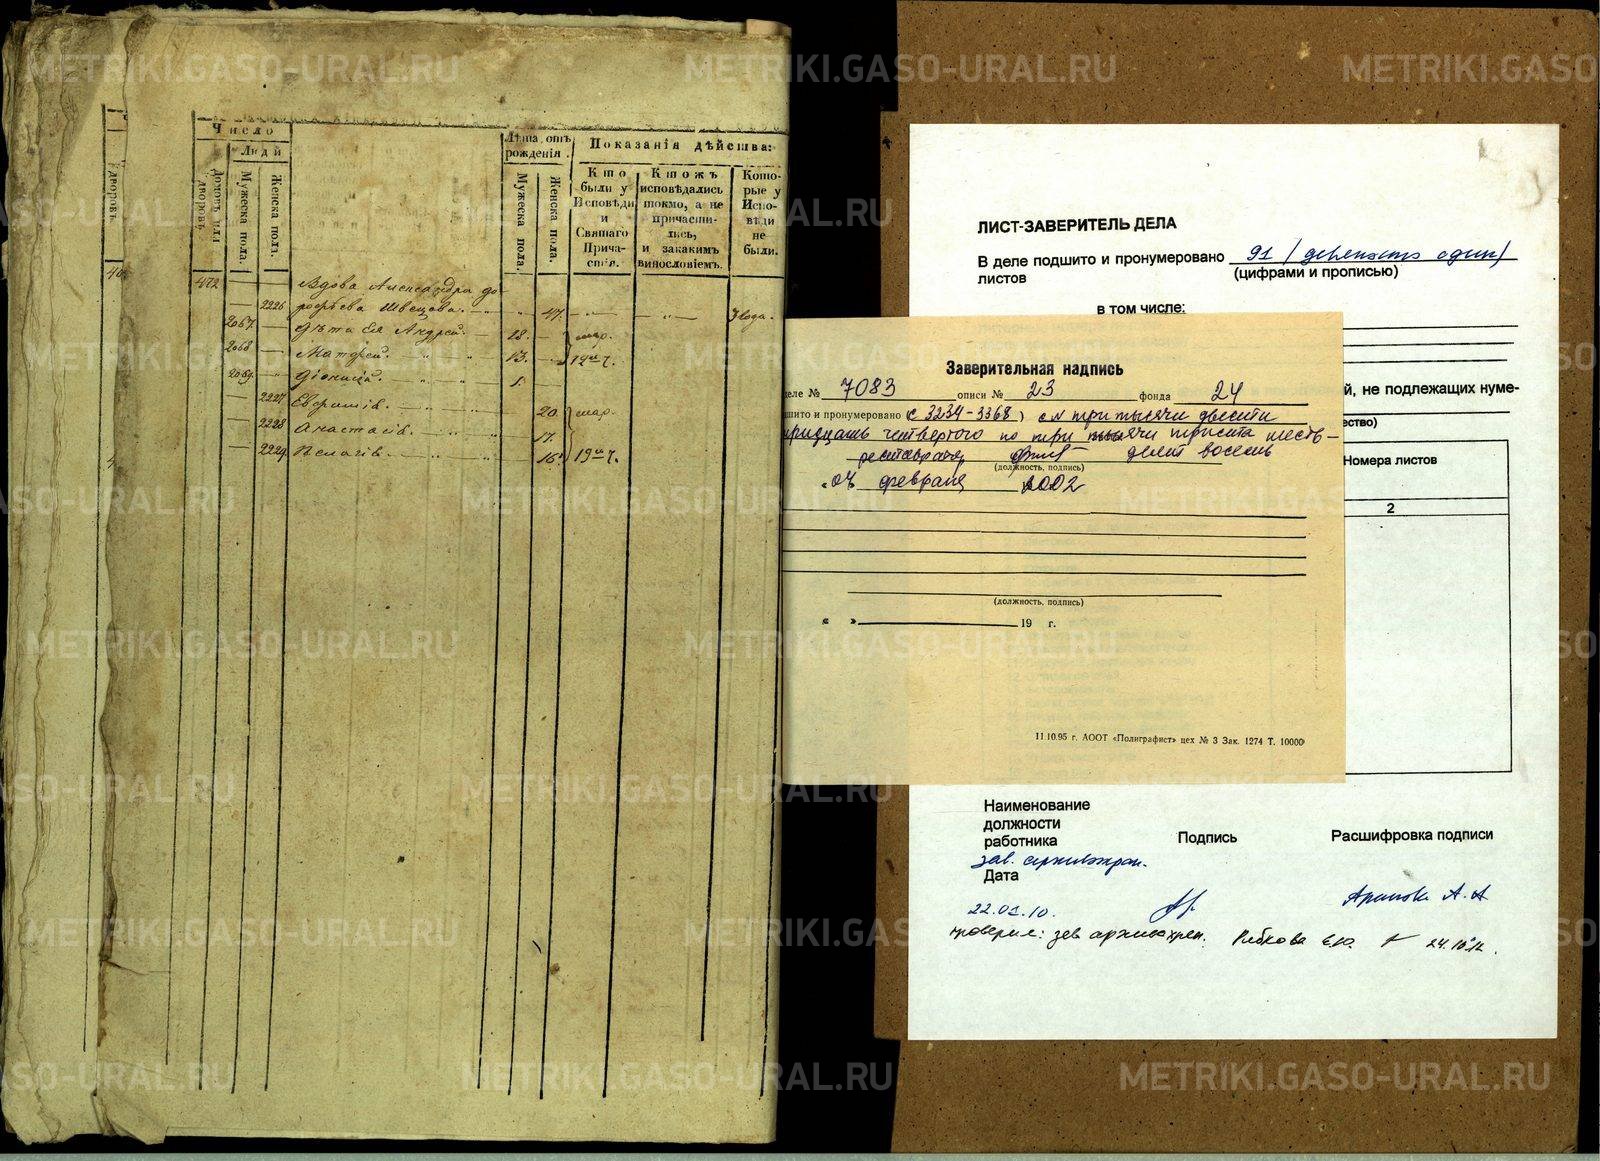 METRIKI.GASO-URAL.RU
Число
Люди
Домовъ или дворовъ.
Мужеска пола.
Женска полъ.
Лѣта отъ рожденія.
Мужеска пола.
Женска пола.
Показанія дѣйства:
Кто были у Исповѣди и Святаго Прича-стія.
Ктожъ исповѣдались токмо, а не причасти-лись, и закакимъ винословіемъ.
Кото-рые у Испо-вѣди не были.
дворовъ.
472
Вдова Александра До-
2226 рофѣева Швецова. 47. 3 года.
2067. Дѣти ея Андрей. 18. мар.
2068 Матфей. 13. 12го ч.
2069. Діонисій.
2227 Евфимія. 20. мар.
2228 Анастасія. 17.
2229 Пелагія. 16. 19го ч.
ЛИСТ-ЗАВЕРИТЕЛЬ ДЕЛА
В деле подшито и пронумеровано 91 (девяносто один)
листов (цифрами и прописью)
в том числе:
й, не подлежащих нуме-
ество)
Номера листов
2
Заверительная надпись
деле № 7083 описи № 23 фонда 24
дшито и пронумеровано (с 3234-3368) с три тысячи двести
тридцать четвертого по три тысячи триста шесть-
реставратор десят восемь
(должность, подпись)
«04 февраля 2002
(должность, подпись)
« » 19 г.
11.10.95 г. АООТ «Полиграфист» цех № 3 Зак. 1274 Т. 10000
Наименование
должности
работника Подпись Расшифровка подписи
зав. архивохран.
Дата
22.01.10.
А.А
проверил: зав архивохран. Рябкова Е.Ю. 24.10.12.